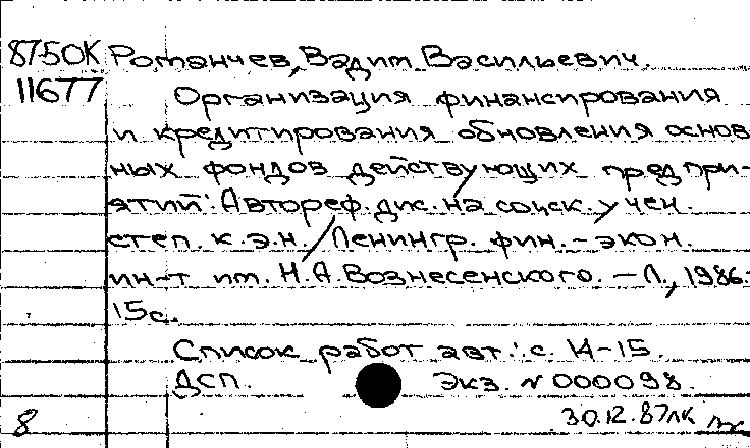 8750К Романчев, Вадим Васильевич.
11677
Организация финансирования
и кредитирования обновления основ
ных фондов действующих предпри-
ятий: Автореф. дис. на соиск. учен.
степ. к.э.н. / Ленингр. фин.-экон.
ин-т им. Н.А.Вознесенского. — Л., 1986.-
15с.
Список работ авт.: с. 14-15.
ДСП. Экз. N 000098.
30.12.87лк
8